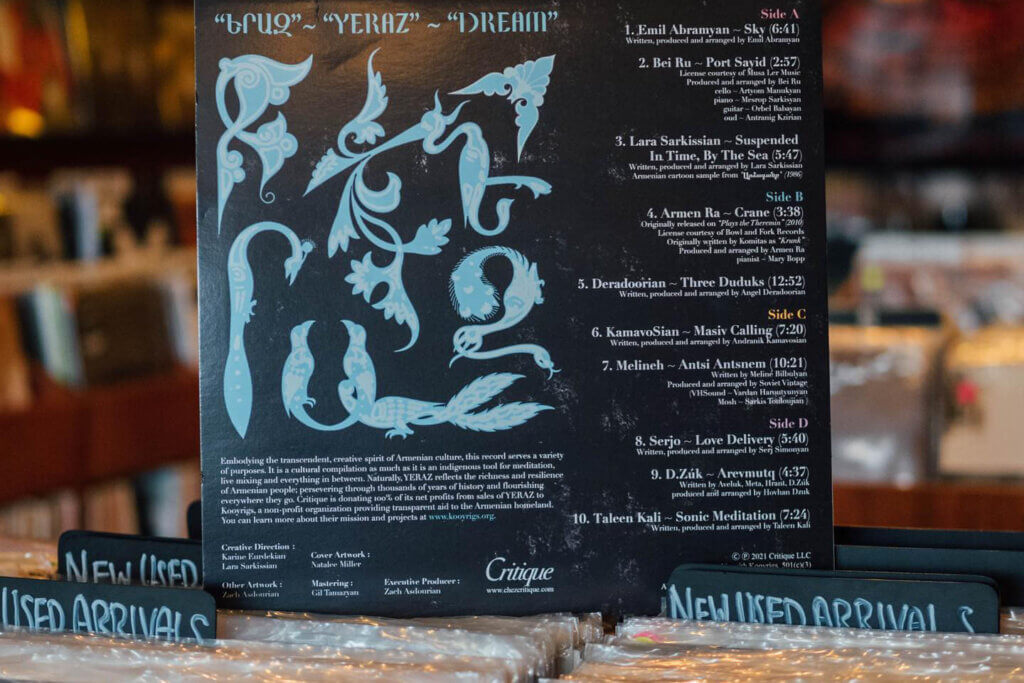 “ԵՐԱԶ” ~ “YERAZ” ~ “DREAM”
Side A
1. Emil Abramyan ~ Sky (6:41)
Written, produced and arranged by Emil Abramyan
2. Bei Ru ~ Port Sayid (2:57)
License courtesy of Musa Ler Music
Produced and arranged by Bei Ru
cello ~ Artyom Manukyan
piano ~ Mesrop Sarkisyan
guitar ~ Orbel Babayan
oud ~ Antranig Kzirian
3. Lara Sarkissian ~ Suspended
In Time, By The Sea (5:47)
Written, produced and arranged by Lara Sarkissian
Armenian cartoon sample from (1986)
Side B
4. Armen Ra ~ Crane (3:38)
Originally released on “Plays the Theremin” (2010)
License courtesy of Bowl and Fork Records
Originally written by Komitas as “Krunk”
Produced and arranged by Armen Ra
pianist ~ Mary Bopp
5. Deradoorian ~ Three Duduks (12:52)
Written, produced and arranged by Angel Deradoorian
Side C
6. KamavoSian ~ Masiv Calling (7:20)
Written, produced and arranged by Andranik Kamavosian
7. Melineh ~ Antsi Antsnem (10:21)
Written by Meline Bilbulyan
Produced and arranged by Soviet Vintage
(VHSound ~ Vardan Haroutyunyan
Mosh ~ Sarkis Toufoujian )
Side D
8. Serjo ~ Love Delivery (5:40)
Written, produced and arranged by Serj Simonyan
9. D.Zúk ~ Arevmutq (4:37)
Written by Aveluk, Meta, Hrant, D.Zúk
produced and arranged by Hovhan Dzuk
10. Taleen Kali ~ Sonic Meditation (7:24)
Written, produced and arranged by Taleen Kali
Embodying the transcendent, creative spirit of Armenian culture, this record serves a variety
of purposes. It is a cultural compilation as much as it is an indigenous tool for meditation,
live mixing and everything in between. Naturally, YERAZ reflects the richness and resilience
of Armenian people; persevering through thousands of years of history and flourishing
everywhere they go. Critique is donating 100% of its net profits from sales of YERAZ to
Kooyrigs, a non-profit organization providing transparent aid to the Armenian homeland.
You can learn more about their mission and projects at www.kooyrigs.org.
Creative Direction :
Karine Eurdekian
Lara Sarkissian
Cover Artwork :
Natalee Miller
Other Artwork :
Zach Asdourian
Mastering :
Gil Tamazyan
Executive Producer :
Zach Asdourian
Critique
www.chezcritique.com
© ℗ 2021 Critique LLC
Kooyrigs, 501(c)(3)
NEW USED
USED ARRIVALS
NEW USED ARRIVALS